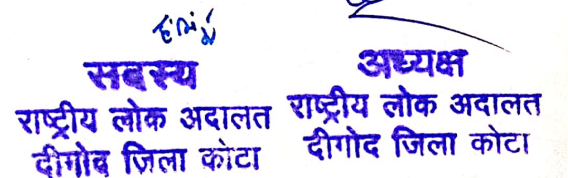 सदस्य
राष्ट्रीय लोक अदालत
दीगोद ज़िला कोटा
अध्यक्ष
राष्ट्रीय लोक अदालत
दीगोद जिला कोटा